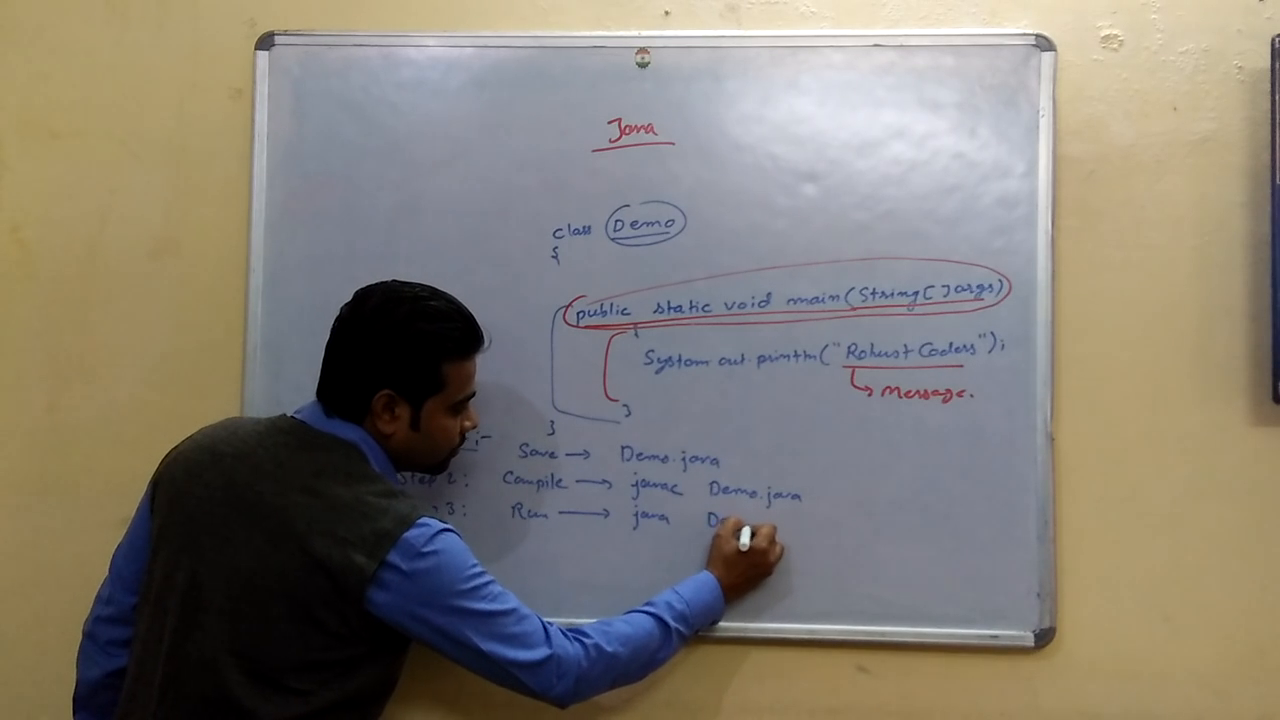 Java
class Demo
{
public static void main(String[]args)
{
System.out.println("Robust Coders");
Message.
}
}
:- Save → Demo.java
Step 2: Compile → javac Demo.java
3: Run → java De